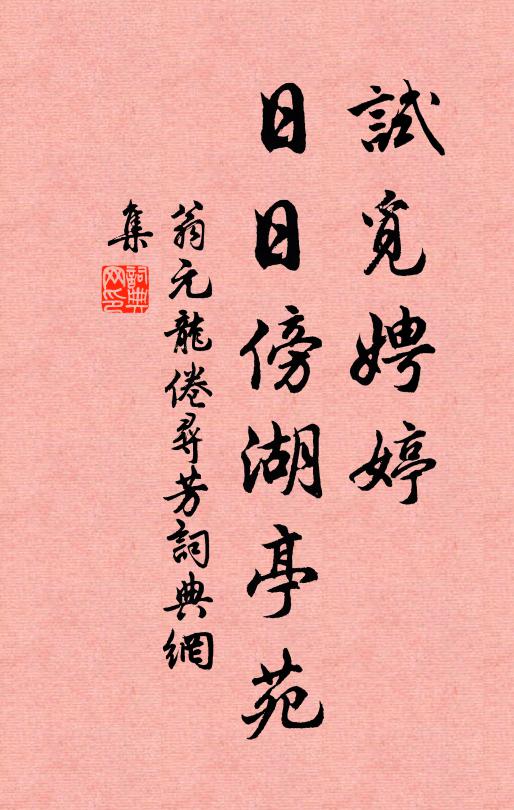 試覓娉婷
日日傍湖亭苑
翁元龍倦尋芳詞典網
集
詞典
网印